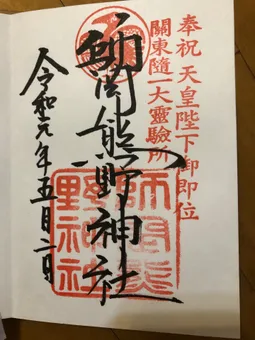 奉祝 天皇陛下御即位
關東隨一大靈驗所
師岡熊野神社
令和元年五月二日